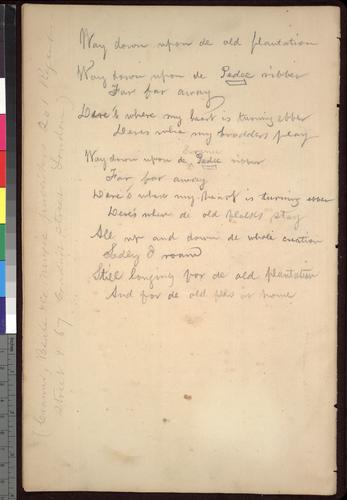 Way down upon de old plantation
Way down upon de Pedee ribber
Far far away
Dere's where my heart is turning ebber
Deres wha my brodders play
Way down upon de Pedee ribber
Far far away
Dere's where my heart is turning ebber
Deres where de old folks stay
All up and down de whole creation
Sadly I roam
Still longing for de old plantation
And for de old folks at home
(Cramer, Beale & Co music publishers 201 Regent
Street & 67 Conduit Street London)